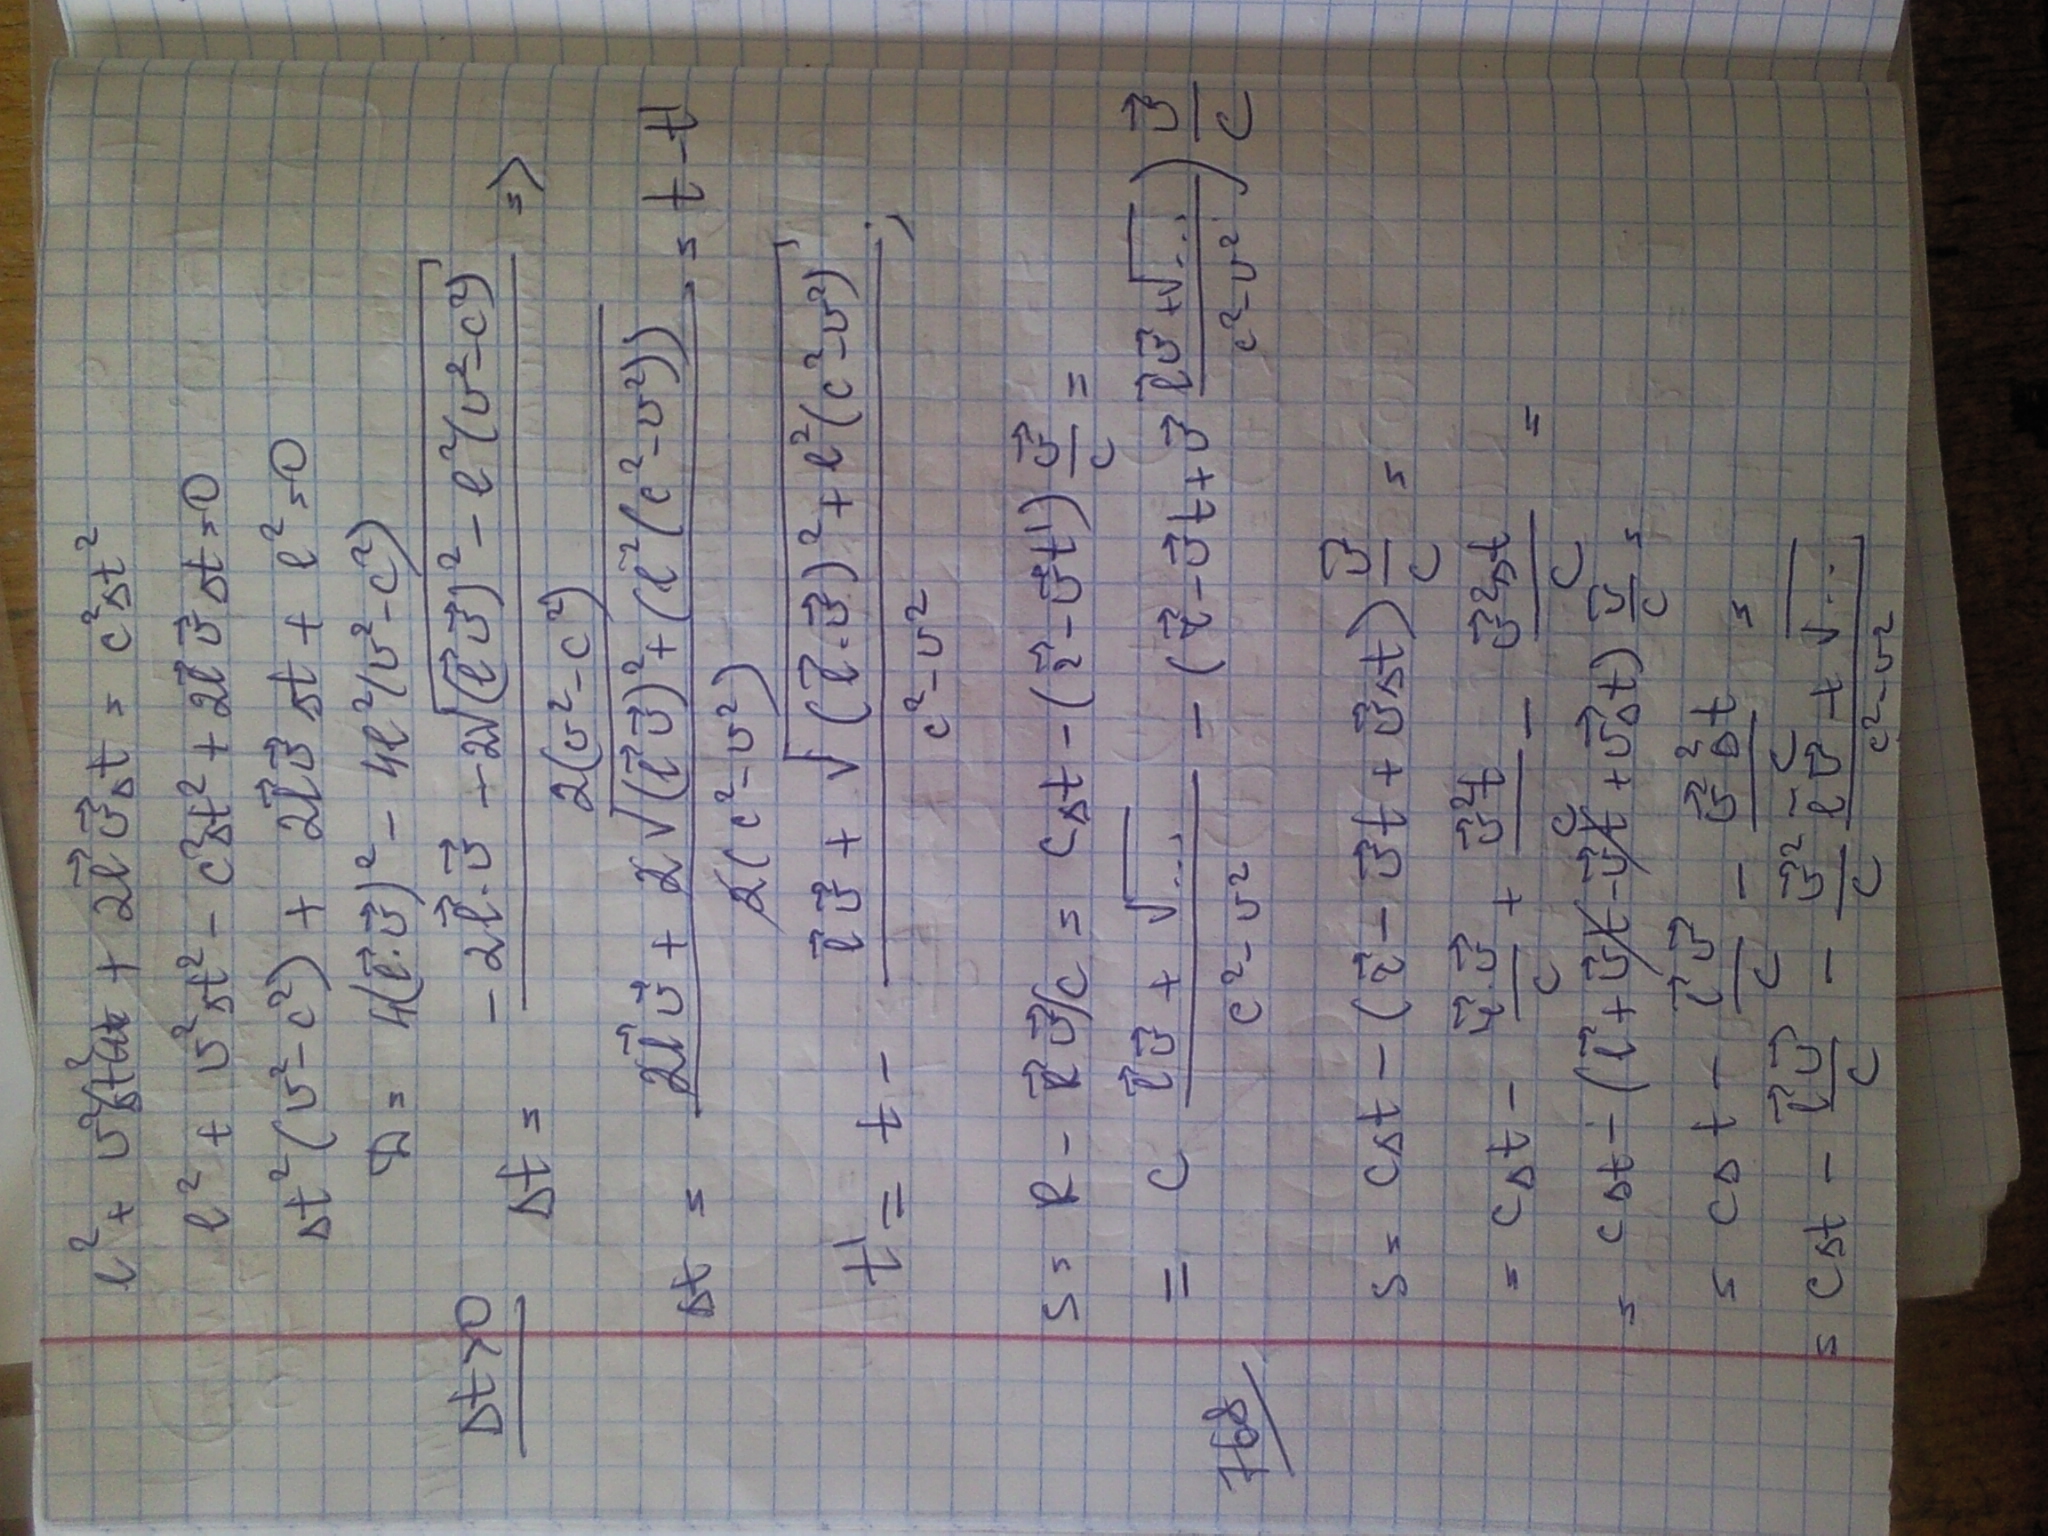 l² + v²Δt² + 2l⃗v⃗Δt = c²Δt²
l² + v²Δt² - c²Δt² + 2l⃗v⃗Δt = 0
Δt²(v²-c²) + 2l⃗v⃗Δt + l² = 0
D = 4(l⃗·v⃗)² - 4l²(v²-c²)
Δt>0 Δt = (-2l⃗·v⃗ + 2√((l⃗v⃗)² - l²(v²-c²))) / 2(v²-c²) =>
Δt = (2l⃗v⃗ + 2√((l⃗v⃗)² + (l²(c²-v²)))) / 2(c²-v²) = t-t'
t' = t - (l⃗v⃗ + √((l⃗·v⃗)² + l²(c²-v²))) / (c²-v²) ;
S = R - R⃗v⃗/c = cΔt - (r⃗ - v⃗t') v⃗/c =
= c (l⃗v⃗ + √...) / (c²-v²) - (r⃗ - v⃗t + v⃗ (l⃗v⃗ + √...) / (c²-v²)) v⃗/c
S = cΔt - (r⃗ - v⃗t + v⃗Δt) v⃗/c =
= cΔt - r⃗·v⃗/c + v⃗²t/c - v⃗²Δt/c =
= cΔt - (l⃗ + v⃗t - v⃗t + v⃗Δt) v⃗/c =
= cΔt - l⃗v⃗/c - v⃗²Δt/c =
= cΔt - l⃗v⃗/c - v⃗²/c (l⃗v⃗ + √...) / (c²-v²)